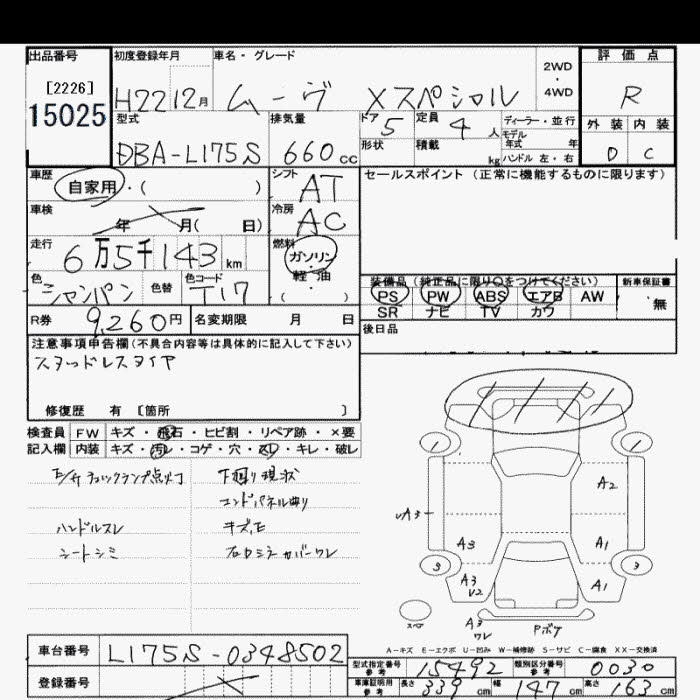 出品番号
[2226]
15025
初度登録年月
H22 12月
車名・グレード
ムーヴ Xスペシャル
2WD
・
4WD
評価点
R
外装 内装
D C
型式
DBA-L175S
排気量
660cc
ドア 5
定員 4人
ディーラー・並行
モデル年式 年
形状
積載 kg
ハンドル 左・右
車歴
自家用・( )
シフト
AT
セールスポイント(正常に機能するものに限ります)
車検
年 月( 日)
冷房
AC
走行
6万5千143km
燃料
ガソリン
軽・油
( )
色
シャンパン
色替
色コード
T17
装備品(純正品に限り○をつけてください)
新車保証書
PS PW ABS エアB AW
無
SR ナビ TV カワ
R券 9,260円
名変期限 月 日
後日品
注意事項申告欄(不具合内容等は具体的に記入して下さい)
スタッドレスタイヤ
修復歴 有 [箇所 ]
検査員 FW キズ・飛石・ヒビ割・リペア跡・×要
記入欄 内装 キズ・汚レ・コゲ・穴・スレ・キレ・破レ
E/gチェックランプ点灯
下回り現状
コンドパネル曲り
ハンドルスレ
キズ、E
シートシミ
A2
A3
A3
A1
3
3
A3
V2
A1
スペア
A3
ワレ
Pボケ
A-キズ E-エクボ U-凹み W-補修跡 S-サビ C-腐食 XX-交換済
車台番号
L175S-0348502
登録番号
型式指定番号
参考
15492
類別区分番号
参考
0030
車庫証明用
参考
長さ 339cm
幅 147cm
高さ 163cm